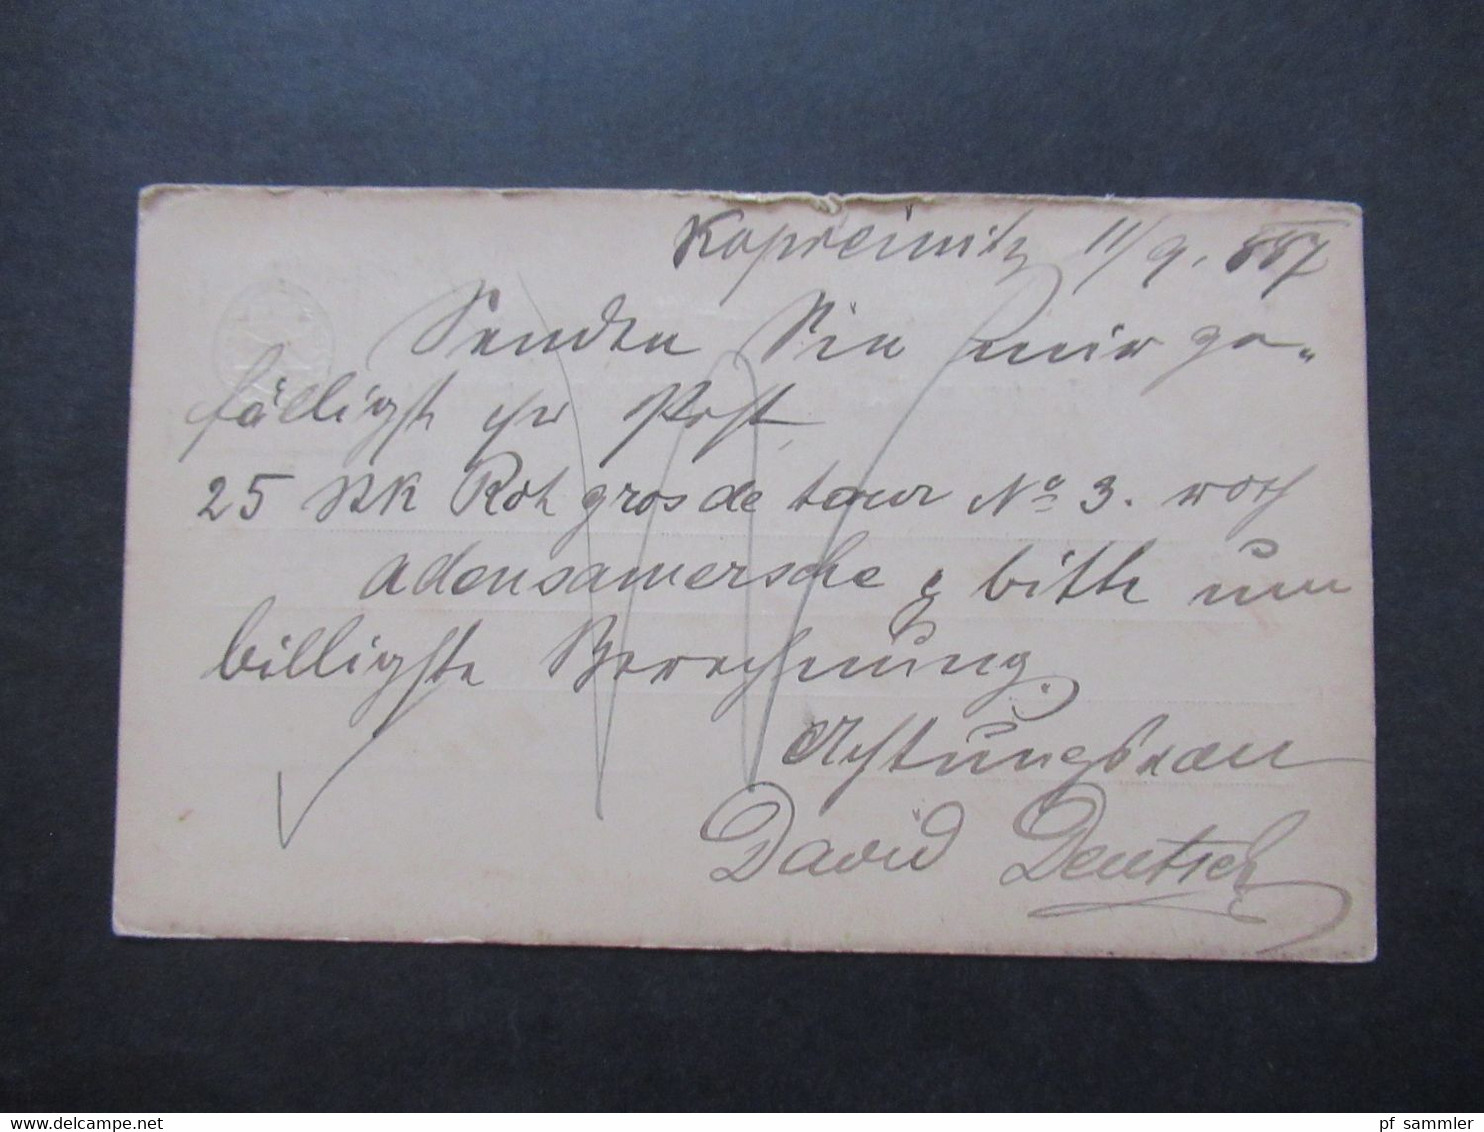 Kopreinitz 11/9. 887
Senden Sie mir ge-
fälligst per Post
25 Stk Roth gros de tour No 3. noch
adensamersche & bitte um
billigste Berechnung.
Achtungsvoll
David Deutsch
www.delcampe.net
pf_sammler